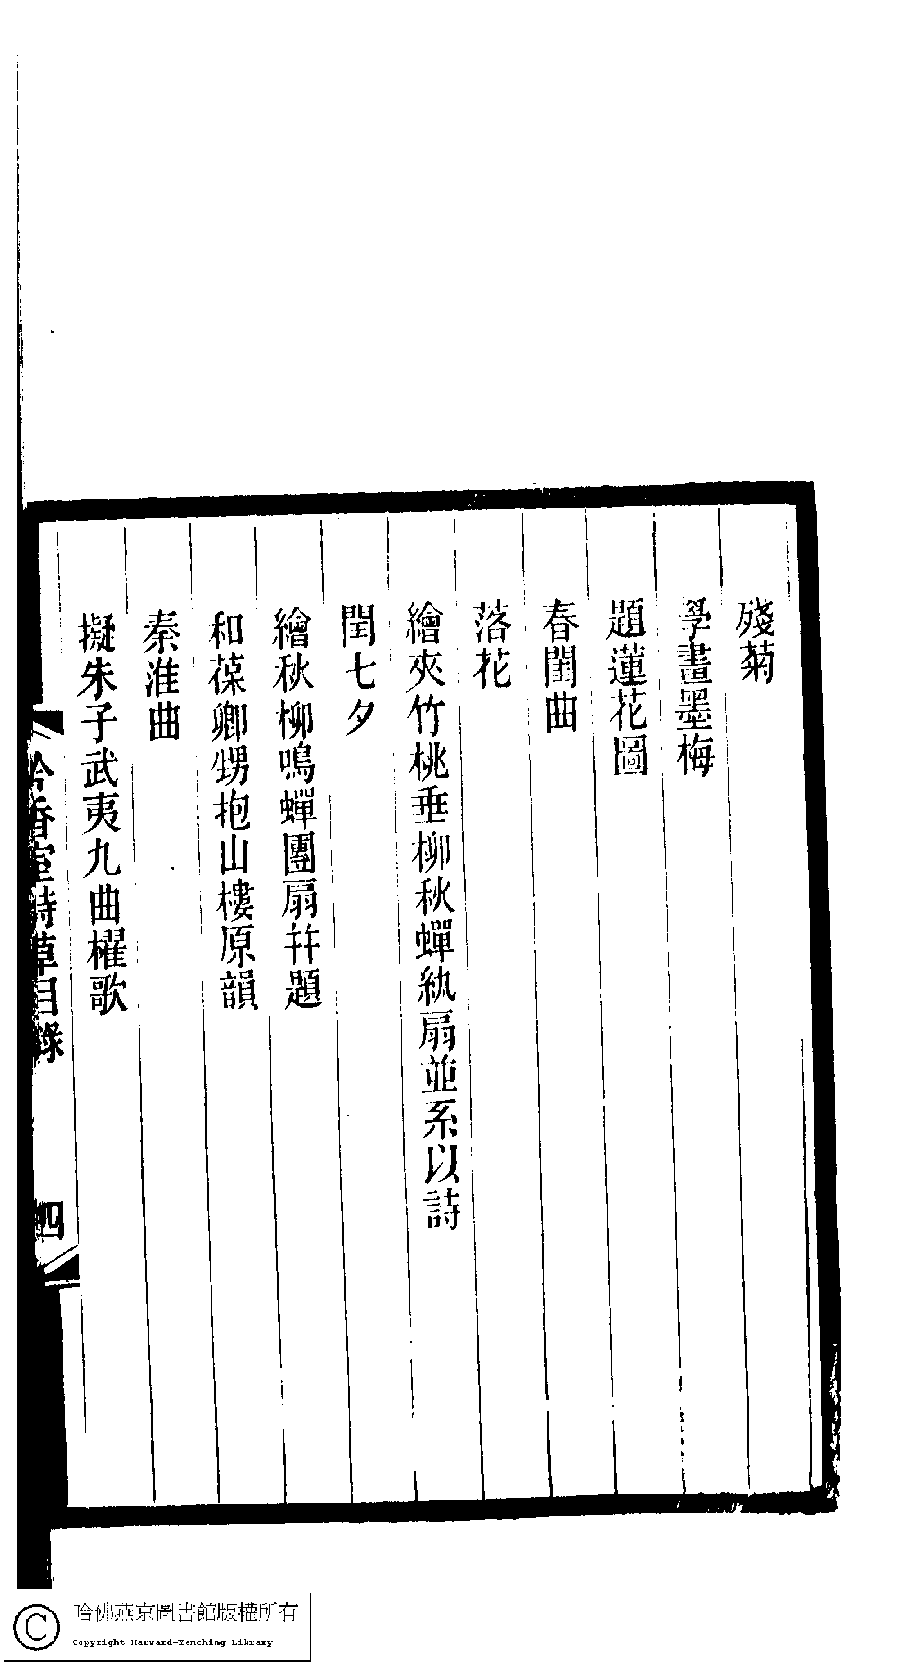 殘菊
學畫墨梅
題蓮花圖
春閨曲
落花
繪夾竹桃垂柳秋蟬紈扇並系以詩
閏七夕
繪秋柳鳴蟬團扇幷題
和葆卿甥抱山樓原韻
秦淮曲
擬朱子武夷九曲櫂歌
吟香室詩草目錄
四
哈佛燕京圖書館版權所有
Copyright Harvard-Yenching Library